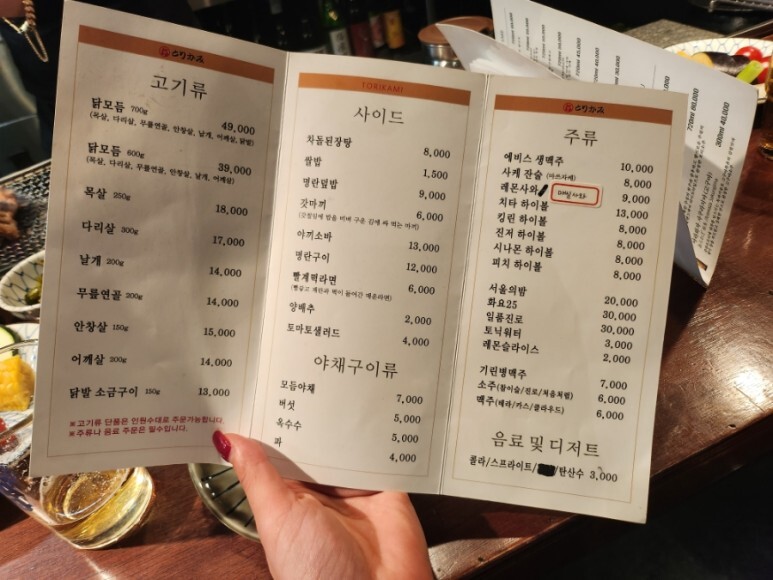 とりかみ
고기류
닭모듬 700g 49,000
(목살, 다리살, 무릎연골, 안창살, 날개, 어깨살, 닭발)
닭모듬 600g 39,000
(목살, 다리살, 무릎연골, 안창살, 날개, 어깨살)
목살 250g 18,000
다리살 300g 17,000
날개 200g 14,000
무릎연골 200g 14,000
안창살 150g 15,000
어깨살 200g 14,000
닭발 소금구이 150g 13,000
※고기류 단품은 인원수대로 주문가능합니다.
※주류나 음료 주문은 필수입니다.
TORIKAMI
사이드
차돌된장탕 8,000
쌀밥 1,500
명란덮밥 9,000
갓마끼 6,000
(갓절임에 밥을 비벼 구운 김에 싸 먹는 마끼)
야끼소바 13,000
명란구이 12,000
빨계떡라면 6,000
(빨갛고 계란과 떡이 들어간 매운라면)
양배추 2,000
토마토샐러드 4,000
야채구이류
모듬야채 7,000
버섯 5,000
옥수수 5,000
파 4,000
とりかみ
주류
에비스 생맥주 10,000
사케 잔술 (아쯔자케) 8,000
레몬사와 매실사와 9,000
치타 하이볼 13,000
킹린 하이볼 8,000
진저 하이볼 8,000
시나몬 하이볼 8,000
피치 하이볼 8,000
서울의밤 20,000
화요25 30,000
일품진로 30,000
토닉워터 3,000
레몬슬라이스 2,000
기린병맥주 7,000
소주(참이슬/진로/처음처럼) 6,000
맥주(테라/카스/클라우드) 6,000
음료 및 디저트
콜라/스프라이트/ /탄산수 3,000
720ml 60,000
300ml 40,000